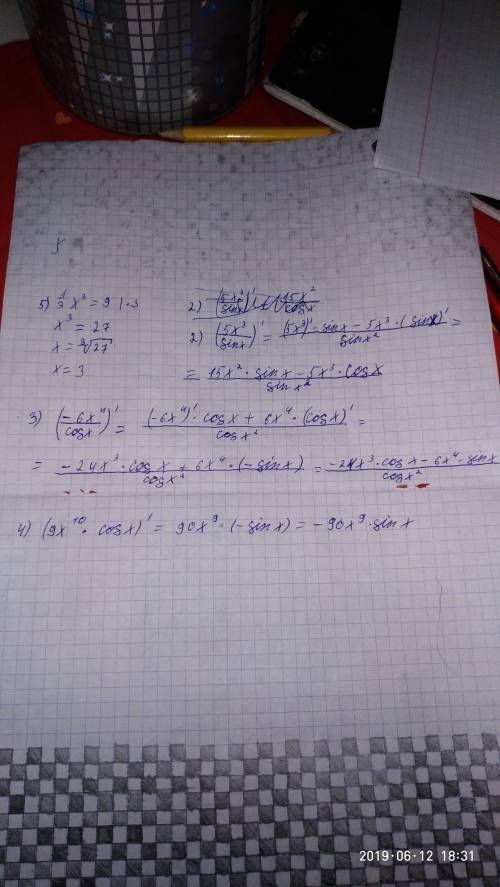 5) 1/3 x³ = 9 | · 3
x³ = 27
x = ³√27
x = 3
2) (5x³/sinx)' 15x²/cosx
2) (5x³/sinx)' = (5x³)' · sinx − 5x³ · (sinx)'/sinx² =
= 15x² · sinx − 5x³ · cosx/sinx²
3) (−6x⁴/cosx)' = (−6x⁴)' · cosx + 6x⁴ · (cosx)'/cosx² =
= −24x³ · cosx + 6x⁴ · (−sinx)/cosx² = −24x³ · cosx − 6x⁴ · sinx/cosx²
4) (9x¹⁰ · cosx)' = 90x⁹ · (−sinx) = −90x⁹ · sinx
2019·06·12 18:31